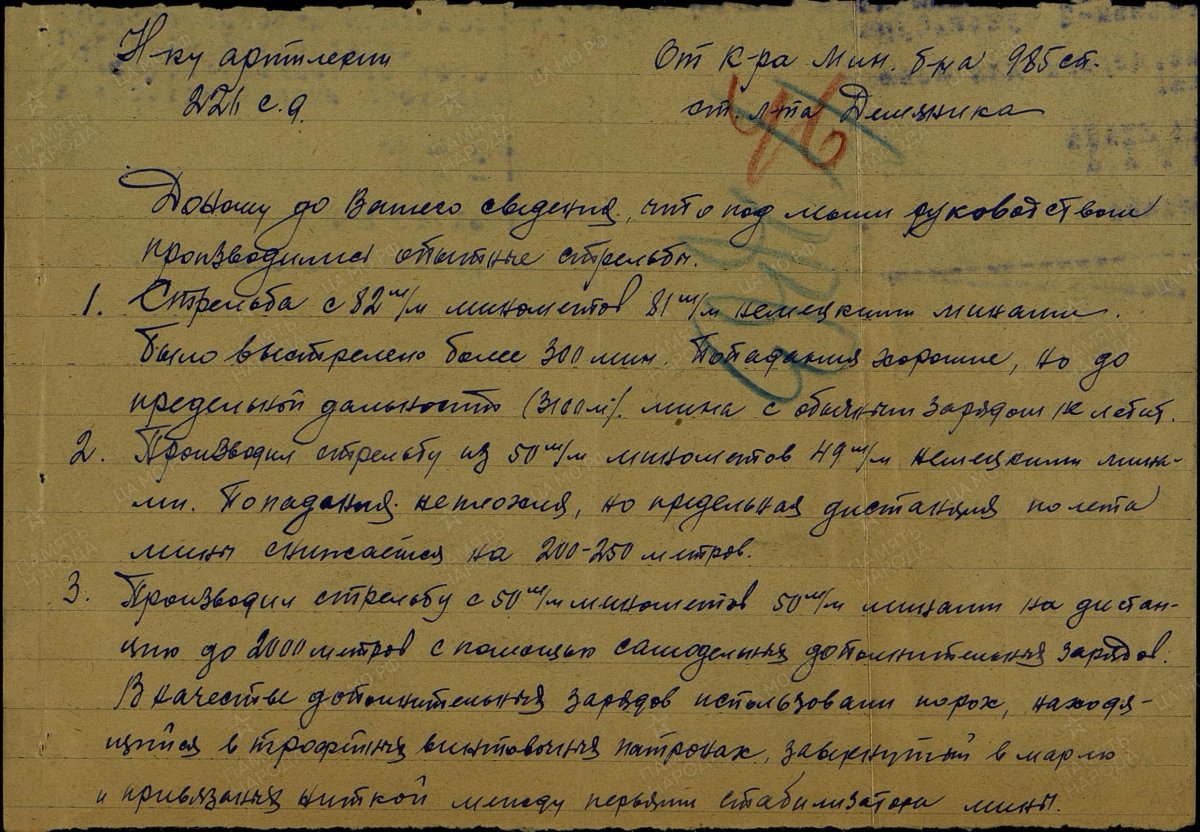 Н-ку артилерии
221 с.д.
От к-ра Мин. б-на 985 сп.
ст. л-та
Доношу до Вашего сведения, что под моим руководством
производились опытные стрельбы.
1. Стрельба с 82 м/м минометов 81 м/м немецкими минами.
Было выстрелено более 300 мин. Попадания хорошие, но до
предельной дальности (3100 м). мина с обычным зарядом не летит.
2. Производил стрельбу из 50 м/м минометов 49 м/м немецкими мина-
ми. Попадания неплохия, но предельная дистанция полета
мины снижается на 200-250 метров.
3. Производил стрельбу с 50 м/м минометов 50 м/м минами на дистан-
цию до 2000 метров с помощью самодельных дополнительных зарядов.
В качестве дополнительных зарядов использовали порох, находя-
щийся в трофейных винтовочных патронах, завернутый в марлю
и привязаный ниткой между перьями стабилизатора мины.
ПАМЯТЬ НАРОДА
ЦА МО РФ